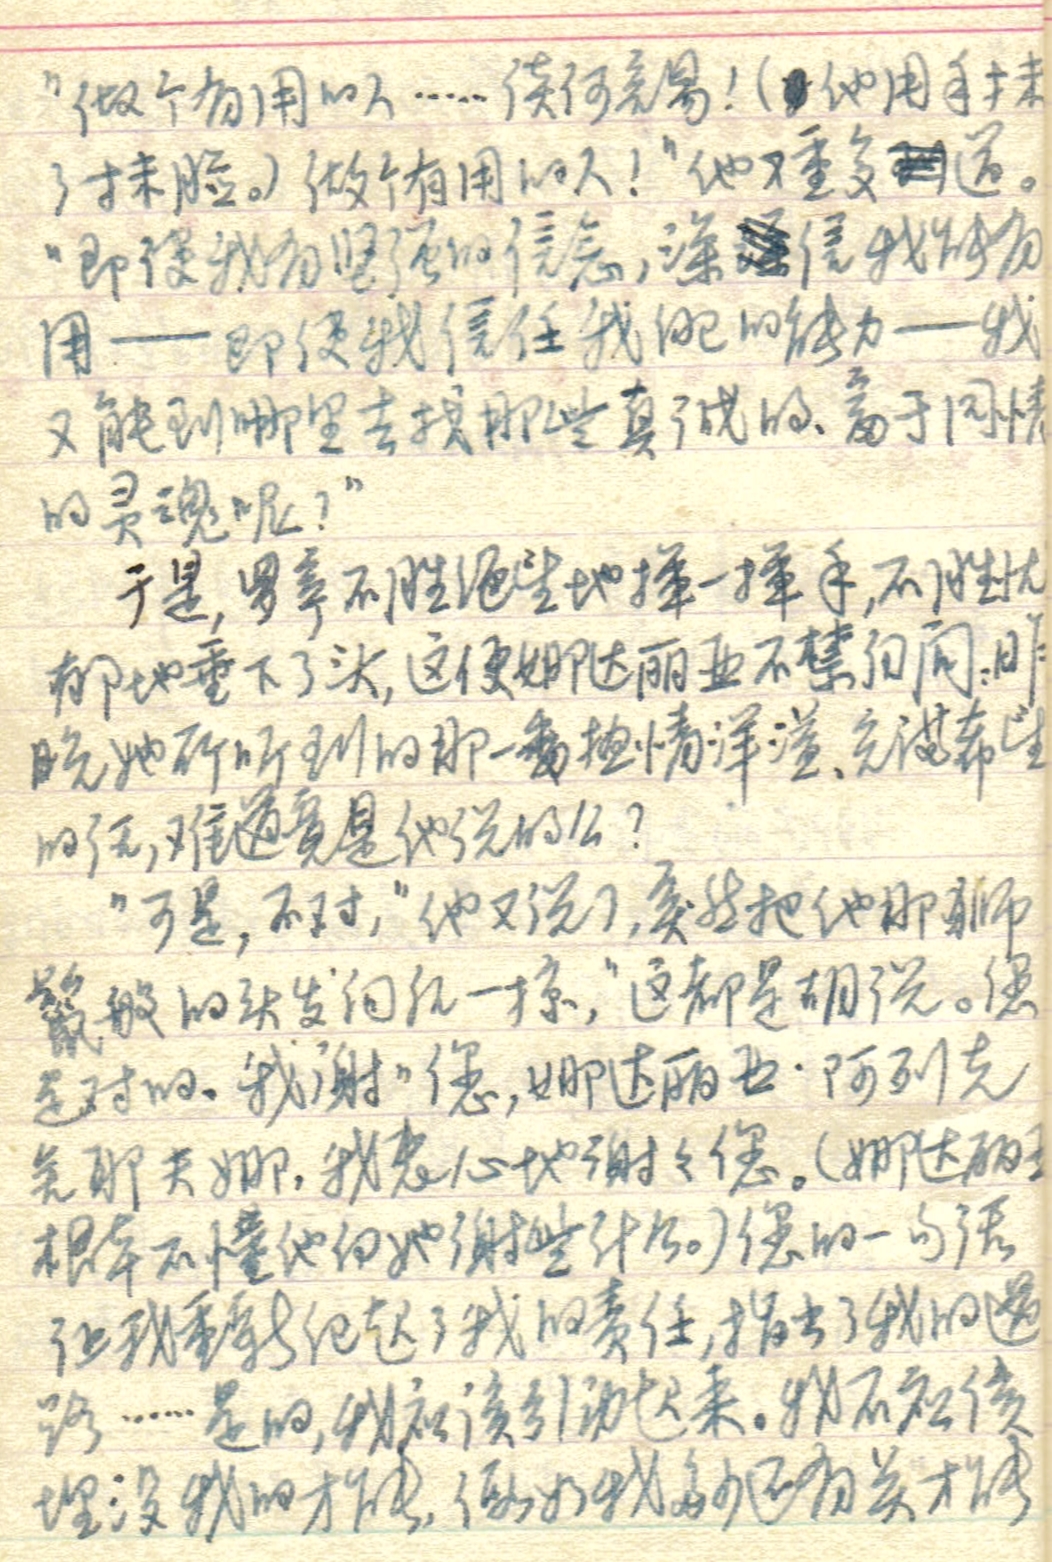 "做个有用的人……谈何容易！(他用手抹
了抹脸。)做个有用的人！"他又重复道。
"即使我有坚强的信念，深信我能有
用——即使我信任我自己的能力——我
又能到哪里去找那些真诚的、富于同情
的灵魂呢？"
于是，罗亭不胜绝望地挥一挥手，不胜忧
郁地垂下了头，这使娜达丽亚不禁自问：昨
晚她所听到的那一番热情洋溢、充满希望
的话，难道竟是他说的么？
"可是，不对，"他又说了，突然把他那狮
鬣般的头发向后一掠，"这都是胡说。您
是对的。我谢谢您，娜达丽亚·阿列克
先耶夫娜，我衷心地谢谢您。(娜达丽亚
根本不懂他向她谢些什么。)您的一句话
让我重新记起了我的责任，指出了我的道
路……是的，我应该行动起来。我不应该
埋没我的才能，假如我多少还有点才能